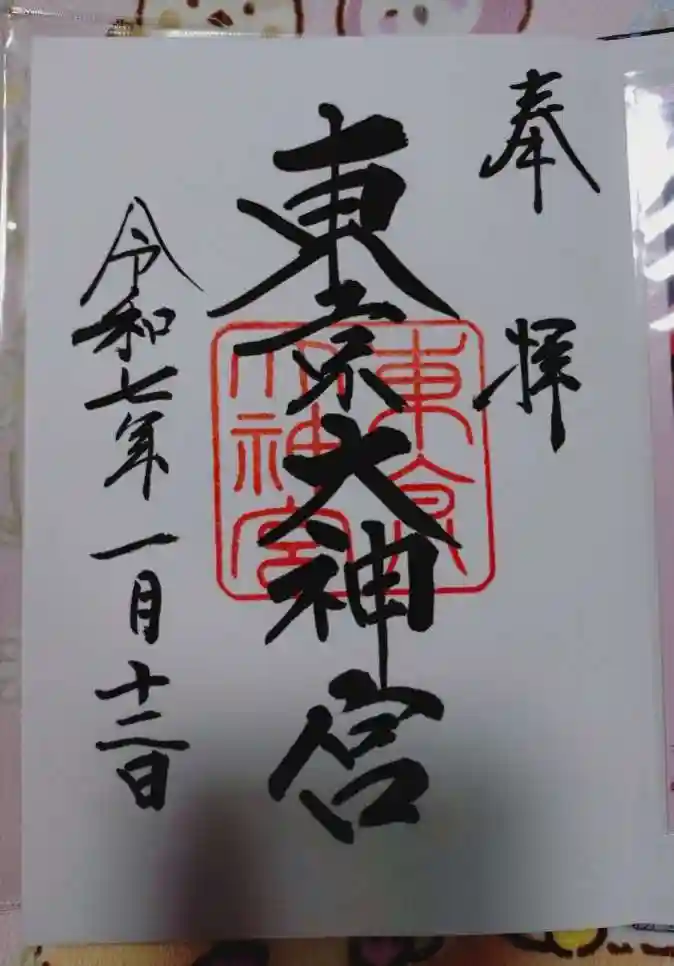 奉拝
東京大神宮
東京
大神宮
令和七年一月十二日